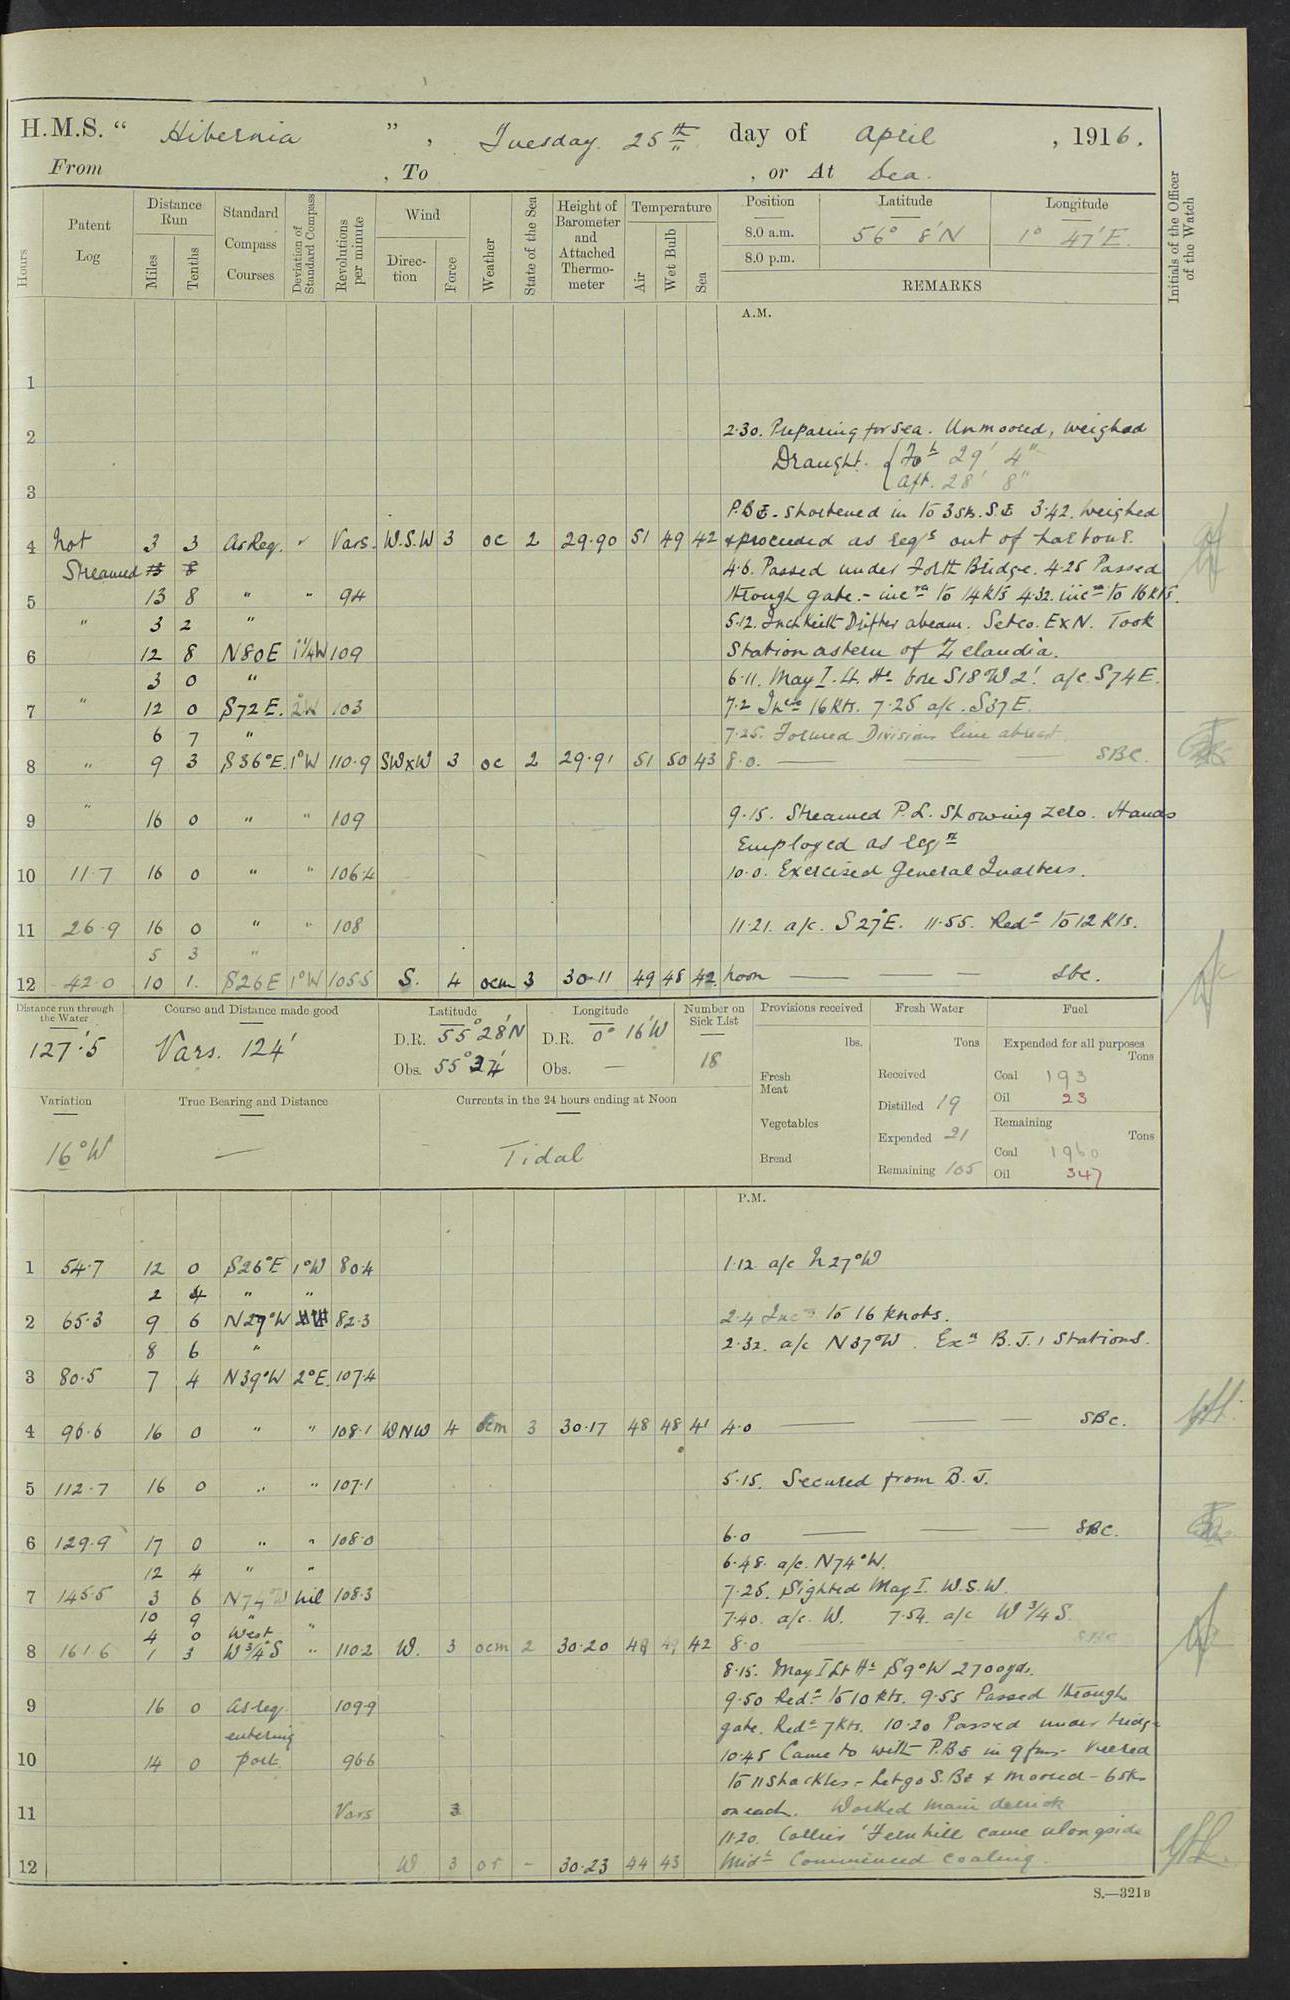 H.M.S. “ Hibernia ” , Tuesday 25th day of April , 1916.
From , To , or At Sea.
Hours
Patent Log
Distance Run
Miles
Tenths
Standard Compass Courses
Deviation of Standard Compass
Revolutions per minute
Wind
Direction
Force
Weather
State of the Sea
Height of Barometer and Attached Thermometer
Temperature
Air
Wet Bulb
Sea
Position Latitude Longitude
8.0 a.m. 56° 8'N 1° 47'E.
8.0 p.m.
REMARKS
Initials of the Officer of the Watch
A.M.
1
2.30. Preparing for Sea. Unmoored, weighed
2
Draught. { For'd 29' 4"
Aft. 28' 8"
3
P.B.E. - Shortened in to 3 sh. S.E 3.42. weighed
4 Not 3 3 As Req. " Vars. W.S.W 3 oc 2 29.90 51 49 42 & proceeded as reqd out of harbour.
Streamed
4.6. Passed under Forth Bridge. 4.25 Passed
5 13 8 " " 94 through gate. - incd to 14 kts 4.32. incd to 16 kts.
" 3 2 " 5.12. Inchkeith Drifter abeam. Setco. ExN. Took
6 12 8 N80E 1¼W 109 Station astern of Zelandia.
3 0 " 6.11. May I. Lt. Hs bore S18W 2'. a/c S74E.
7 " 12 0 S72E. 2°W 103 7.2 Incd 16 kts. 7.25 a/c. S37E.
6 7 " 7.25. Formed Divisions line abreast.
8 " 9 3 S36°E. 1°W 110.9 SWxW 3 oc 2 29.91 51 50 43 8.0. — — — SBC.
9 " 16 0 " " 109 9.15. Streamed P.L. Showing zero. Hands
Employed as reqd
10 11.7 16 0 " " 106.4 10.0. Exercised General Quarters.
11 26.9 16 0 " " 108 11.21. a/c. S27°E. 11.55. Redd to 12 Kts.
5 3 "
12 42.0 10 1. S26E 1°W 105.5 S. 4 ocm 3 30.11 49 48 42 noon — — — sbc.
Distance run through the Water
127'.5
Course and Distance made good
Vars. 124'
Latitude
D.R. 55° 28'N
Obs. 55° 27'
Longitude
D.R. 0° 16'W
Obs. —
Number on Sick List
18
Provisions received
lbs.
Fresh Meat
Vegetables
Bread
Fresh Water
Tons
Received
Distilled 19
Expended 21
Remaining 105
Fuel
Expended for all purposes
Tons
Coal 193
Oil 23
Remaining
Tons
Coal 1960
Oil 347
Variation
16°W
True Bearing and Distance
—
Currents in the 24 hours ending at Noon
Tidal
P.M.
1 54.7 12 0 S26°E 1°W 80.4 1.12 a/c N27°W
2 4 " "
2 65.3 9 6 N29°W 82.3 2.4 Incd to 16 knots.
8 6 " 2.32. a/c N37°W. Exd B.J.1 Stations.
3 80.5 7 4 N39°W 2°E. 107.4
4 96.6 16 0 " " 108.1 WNW 4 ocm 3 30.17 48 48 41 4.0 — — SBC.
5 112.7 16 0 " " 107.1 5.15. Secured from B.J.
6 129.9 17 0 " " 108.0 6.0 — — — SBC.
12 4 " " 6.48. a/c. N74°W.
7 145.5 3 6 N74°W nil 108.3 7.25. Sighted May I. W.S.W.
10 9 " 7.40. a/c. W. 7.54. a/c W ¾ S.
4 0 West "
8 161.6 1 3 W¾S " 110.2 W. 3 ocm 2 30.20 48 49 42 8.0 SBC
8.15. May I Lt Hs S9°W 2700yds.
9 16 0 As req. 109.9 9.50 Redd to 10 kts. 9.55 Passed through
entering gate. Redd 7 kts. 10.20 Passed under bridge
10 14 0 port. 96.6 10.45 Came to with P.B.E in 9 fms. - Veered
to 11 shackles. - Let go S.B.E & moored - 6 shs
11 Vars 3 on each. Worked main derrick
11.20. Collier 'Fernhill came alongside
12 W 3 or - 30.23 44 43 Midt Commenced coaling.
S.—321B